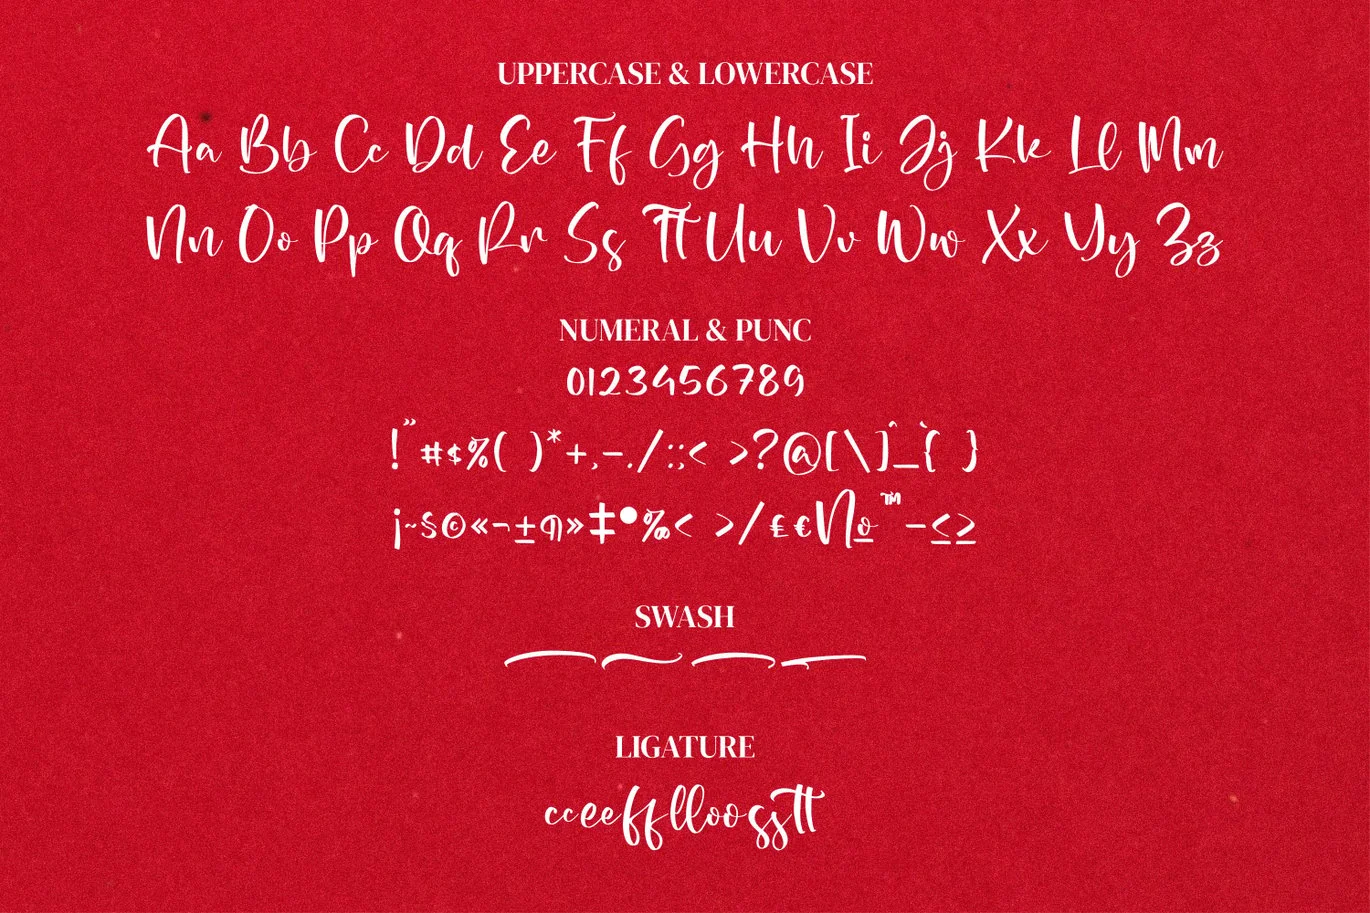 UPPERCASE & LOWERCASE
Aa Bb Cc Dd Ee Ff Gg Hh Ii Jj Kk Ll Mm
Nn Oo Pp Qq Rr Ss Tt Uu Vv Ww Xx Yy Zz
NUMERAL & PUNC
0123456789
!"#$%( )*+,-./:;< >?@[\]^_`{ }
¡~§©«¬±¶»‡•‰‹ ›⁄£€№™−≤≥
SWASH
LIGATURE
cceefflloosstt